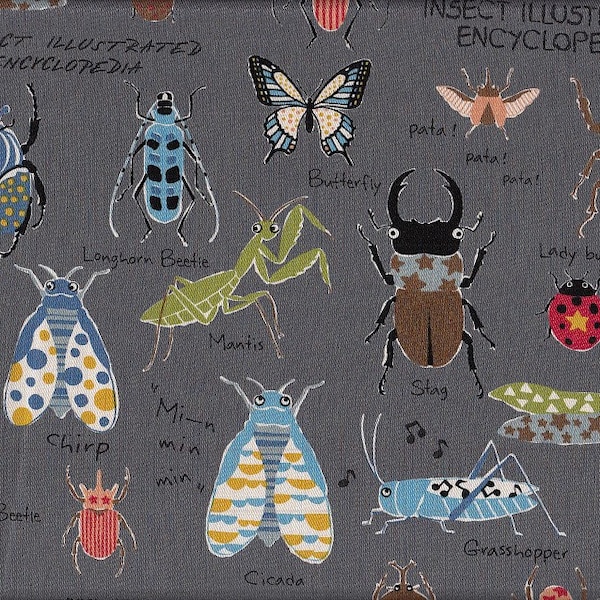 INSECT ILLUST
ENCYCLOPE
CT ILLUSTRATED
ENCYCLOPEDIA
pata!
pata!
pata!
Butterfly
Longhorn Beetle
Lady bu
Mantis
Stag
"Mi—n
min
min"
Chirp
Beetle
Grasshopper
Cicada